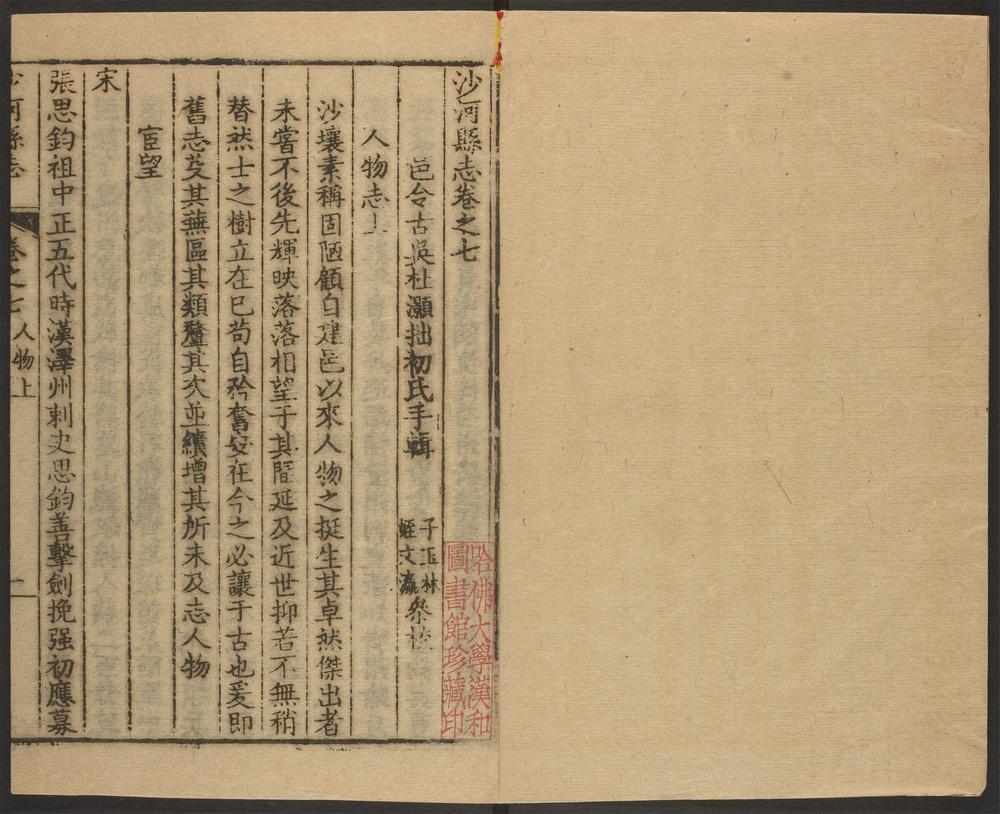 沙河縣志卷之七
邑令古吳杜灝拙初氏手輯
子玉林
姪文瀛
叅校
人物志上
沙壤素稱固陋顧自建邑以來人物之挺生其卓然傑出者
未嘗不後先輝映落落相望于其間延及近世抑若不無稍
替然士之樹立在巳苟自矜奮安在今之必讓于古也爰即
舊志芟其蕪區其類釐其次並續增其所未及志人物
宦望
宋
張思鈞祖中正五代時漢澤州刺史思鈞善擊劍挽强初應募
沙河縣志
卷之七
人物上
一
哈佛大學漢和
圖書館珍藏印